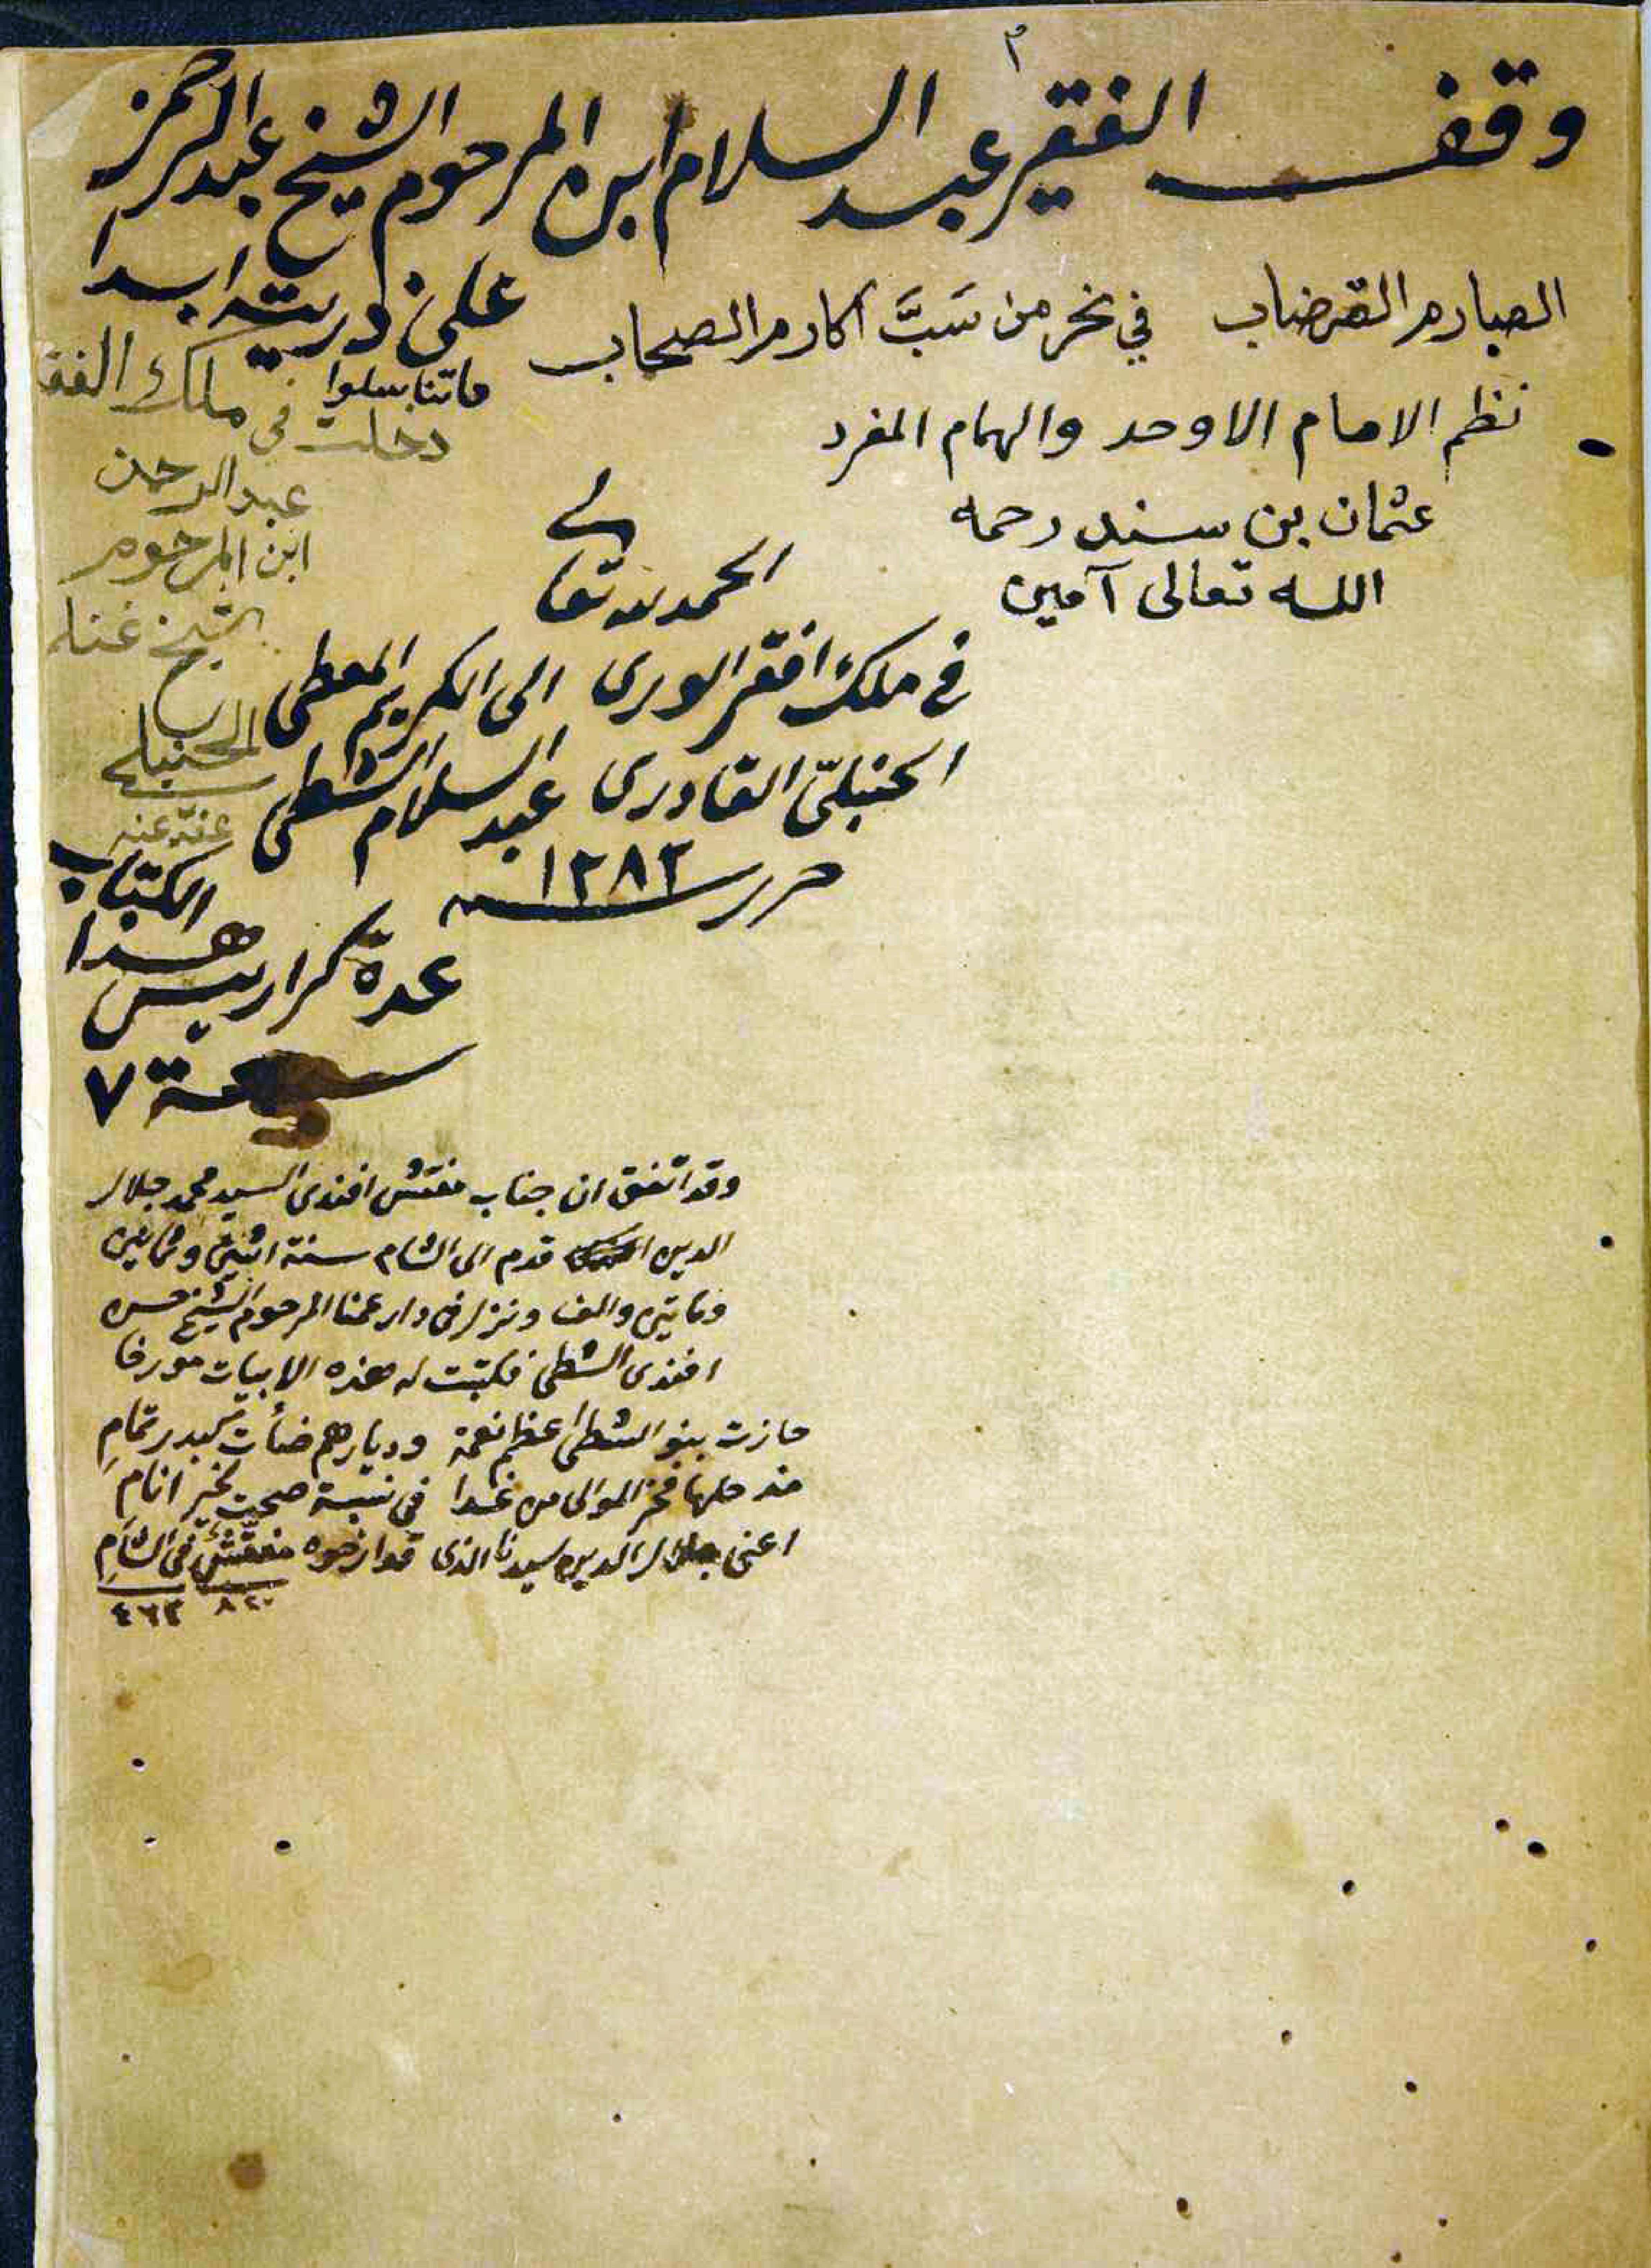 ٣
وقف الفقير عبد السلام ابن المرحوم الشيخ عبد الرحمن
على ذريته ابدا
ما تناسلوا
الصارم القرضاب في نحر من سَبَّ اكارم الصحاب
نظم الامام الاوحد والهمام المفرد
عثمان بن سند رحمه
الله تعالى آمين
دخلت في ملك الفق
عبد الرحمن
ابن المرحوم
الشيخ غنام
الحنبلي
عفي عنه
الحمد لله تعالى
في ملك افقر الورى الى الكريم المعطي
الحنبلي القادري عبد السلام الشطي
حرر سنة ١٢٨٢
عدة كراريس هذا الكتاب
سبعة ٧
وقد اتفق ان جناب مفتش افندى السيد محمد جلال
الدين قدم الى الشام سنة اثنين وثمانين
ومايتين والف ونزل في دار عمنا المرحوم الشيخ حسن
افندى الشطي فكتبت له هذه الابيات مورخا
حازت بنو الشطي اعظم نعمة وديارهم ضأت كبدر تمامِ
مذ حلها فخر الموالى من غدا في نسبة صحت لخير انامِ
اعنى جلال الدين سيدنا الذى قد ارخوه مفتش في الشامِ
٨٢٠ ٤٦٢